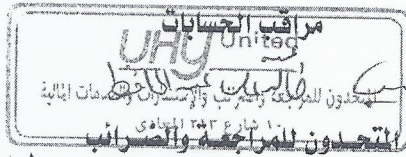 مراقب الحسابات
UHY United
المتحدون للمراجعة والضرائب والإستشارات والخدمات المالية
١٠ شارع ٢٣٣ المعادى
المتحدون للمراجعة والضرائب